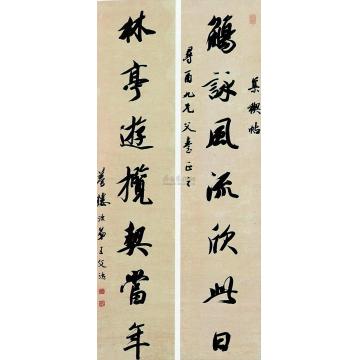 集禊帖
觴詠風流欣此日
尋酉九兄父臺正之
林亭遊攬契當年
弟王文治